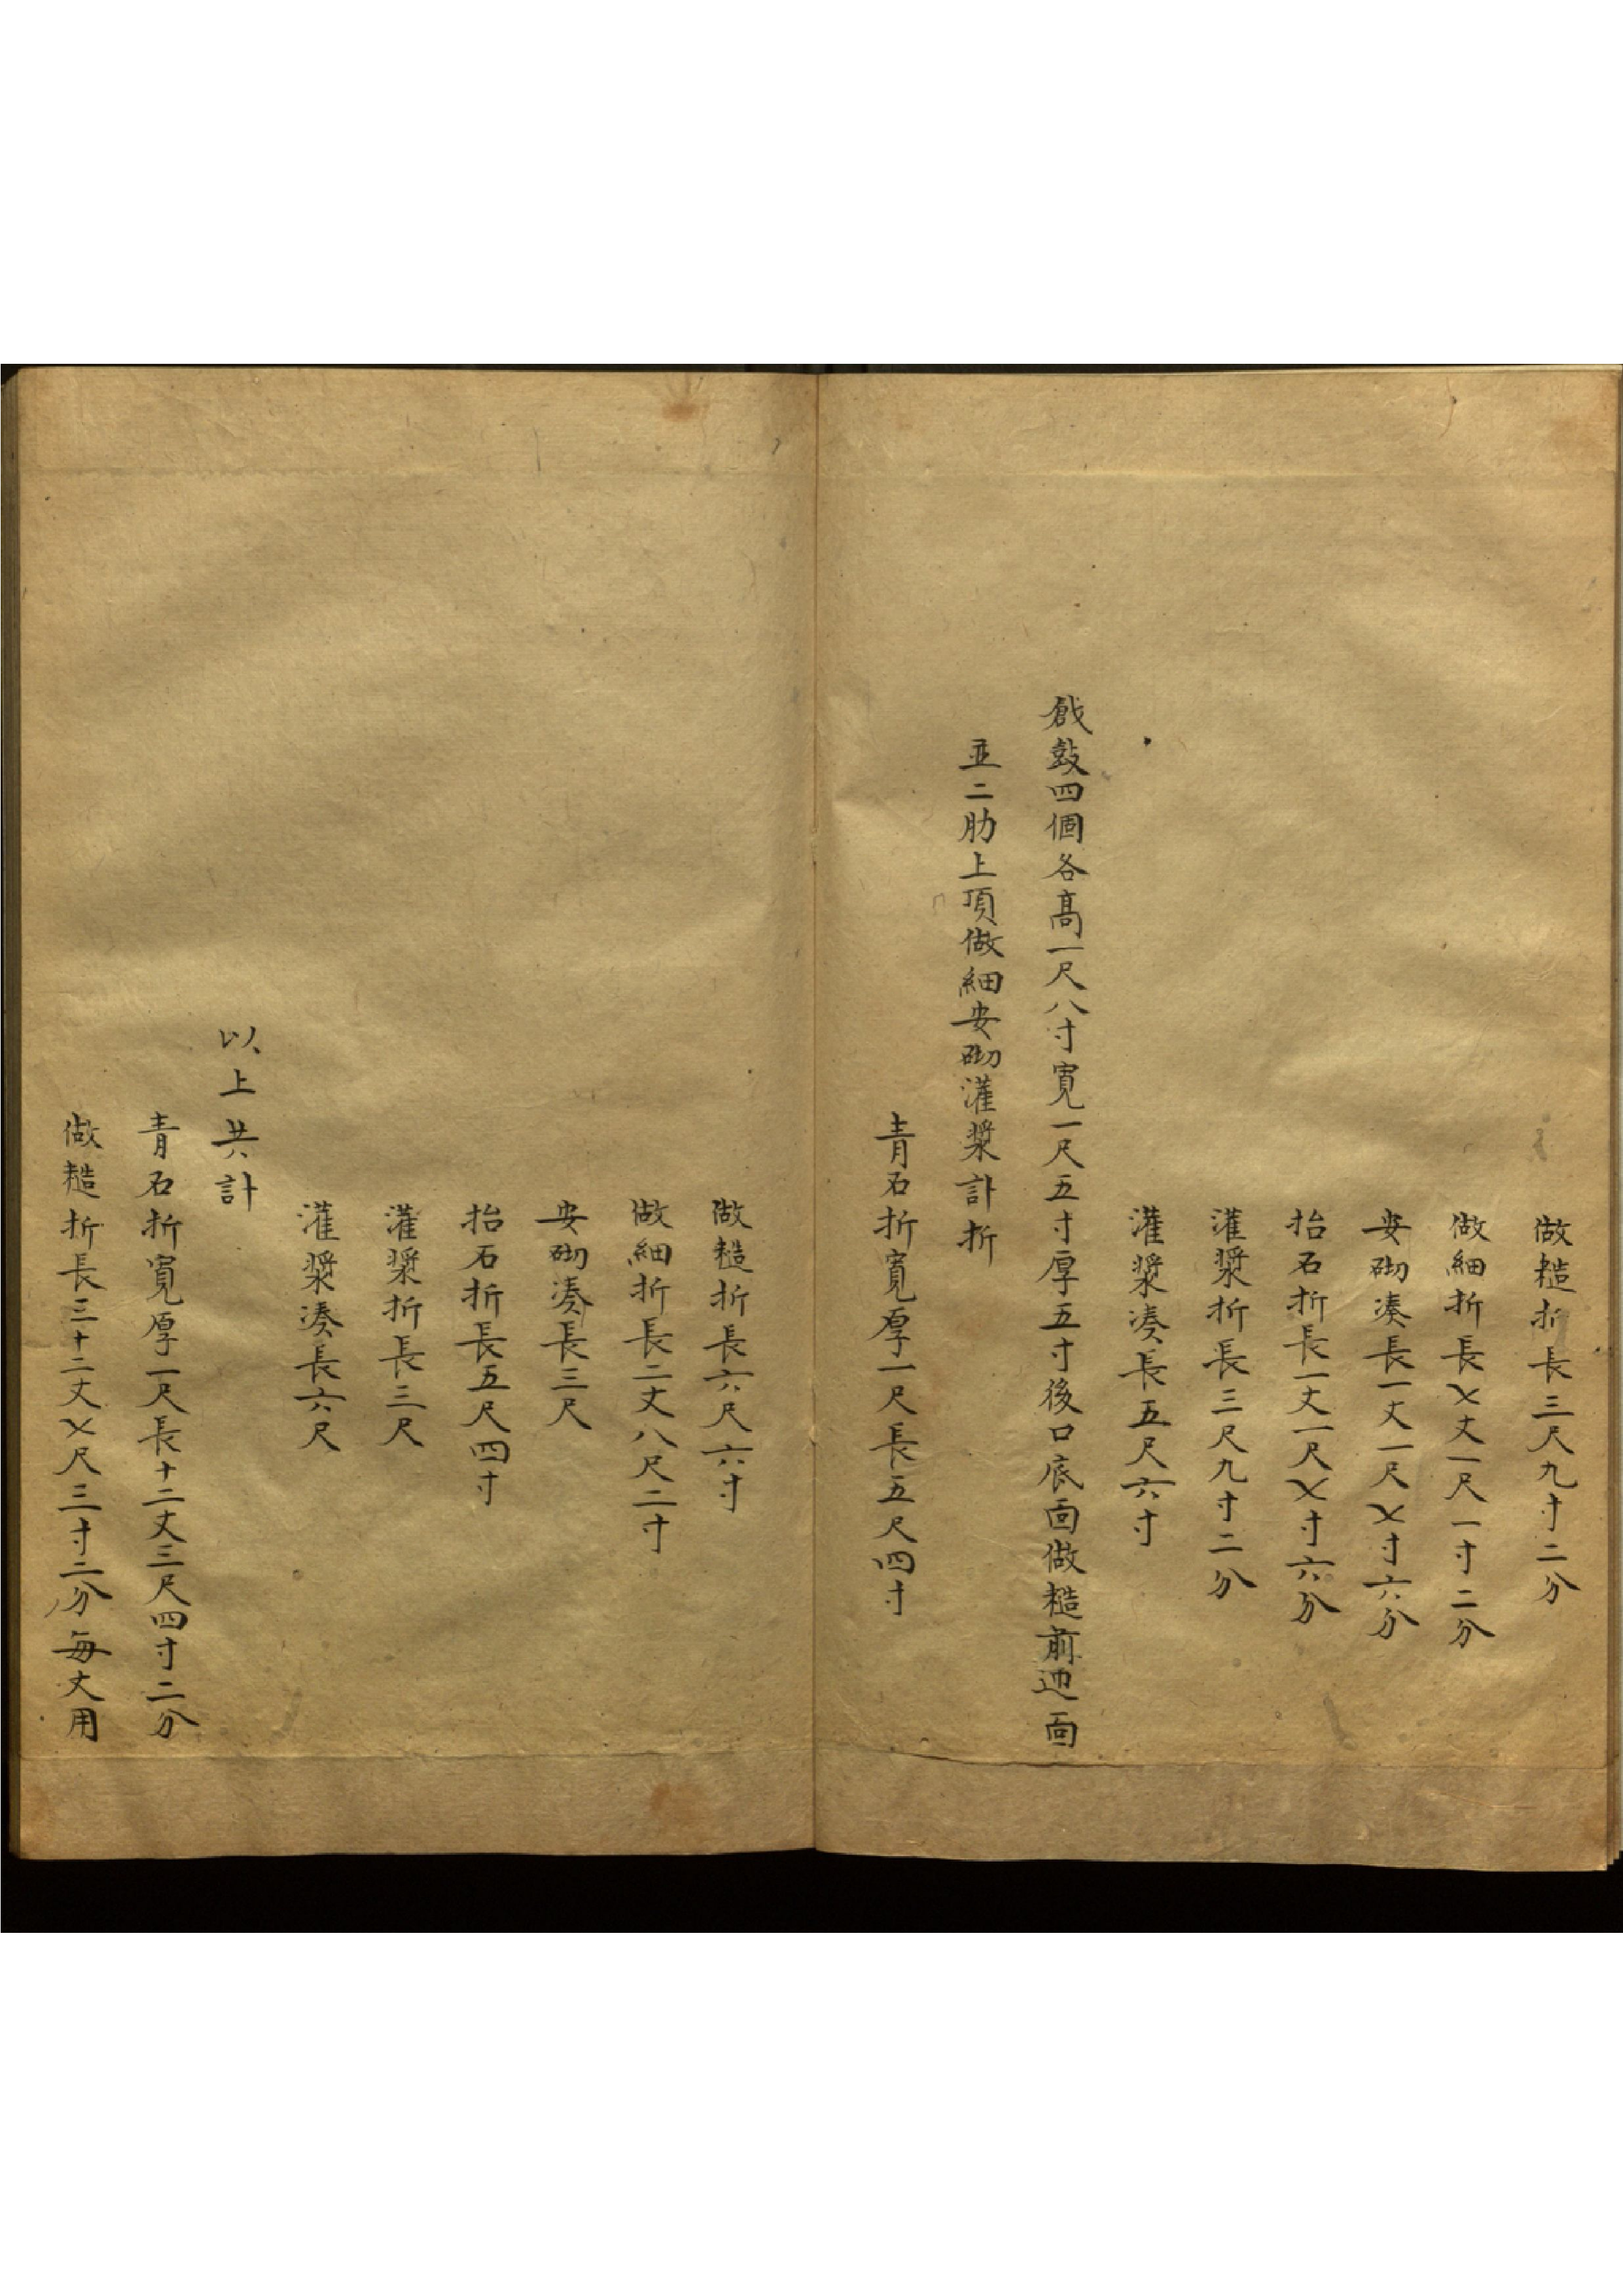 做糙折長三尺九寸二分
做細折長乂丈一尺一寸二分
安砌湊長一丈一尺乂寸六分
抬石折長一丈一尺乂寸六分
灌漿折長三尺九寸二分
灌漿湊長五尺六寸
戧鼓四個各高一尺八寸寬一尺五寸厚五寸後口底面做糙前迎面
並二肋上頂做細安砌灌漿計折
青石折寬厚一尺長五尺四寸
做糙折長六尺六寸
做細折長二丈八尺二寸
安砌湊長三尺
抬石折長五尺四寸
灌漿折長三尺
灌漿湊長六尺
以上共計
青石折寬厚一尺長十二丈三尺四寸二分
做糙折長三十二丈乂尺三寸二分每丈用